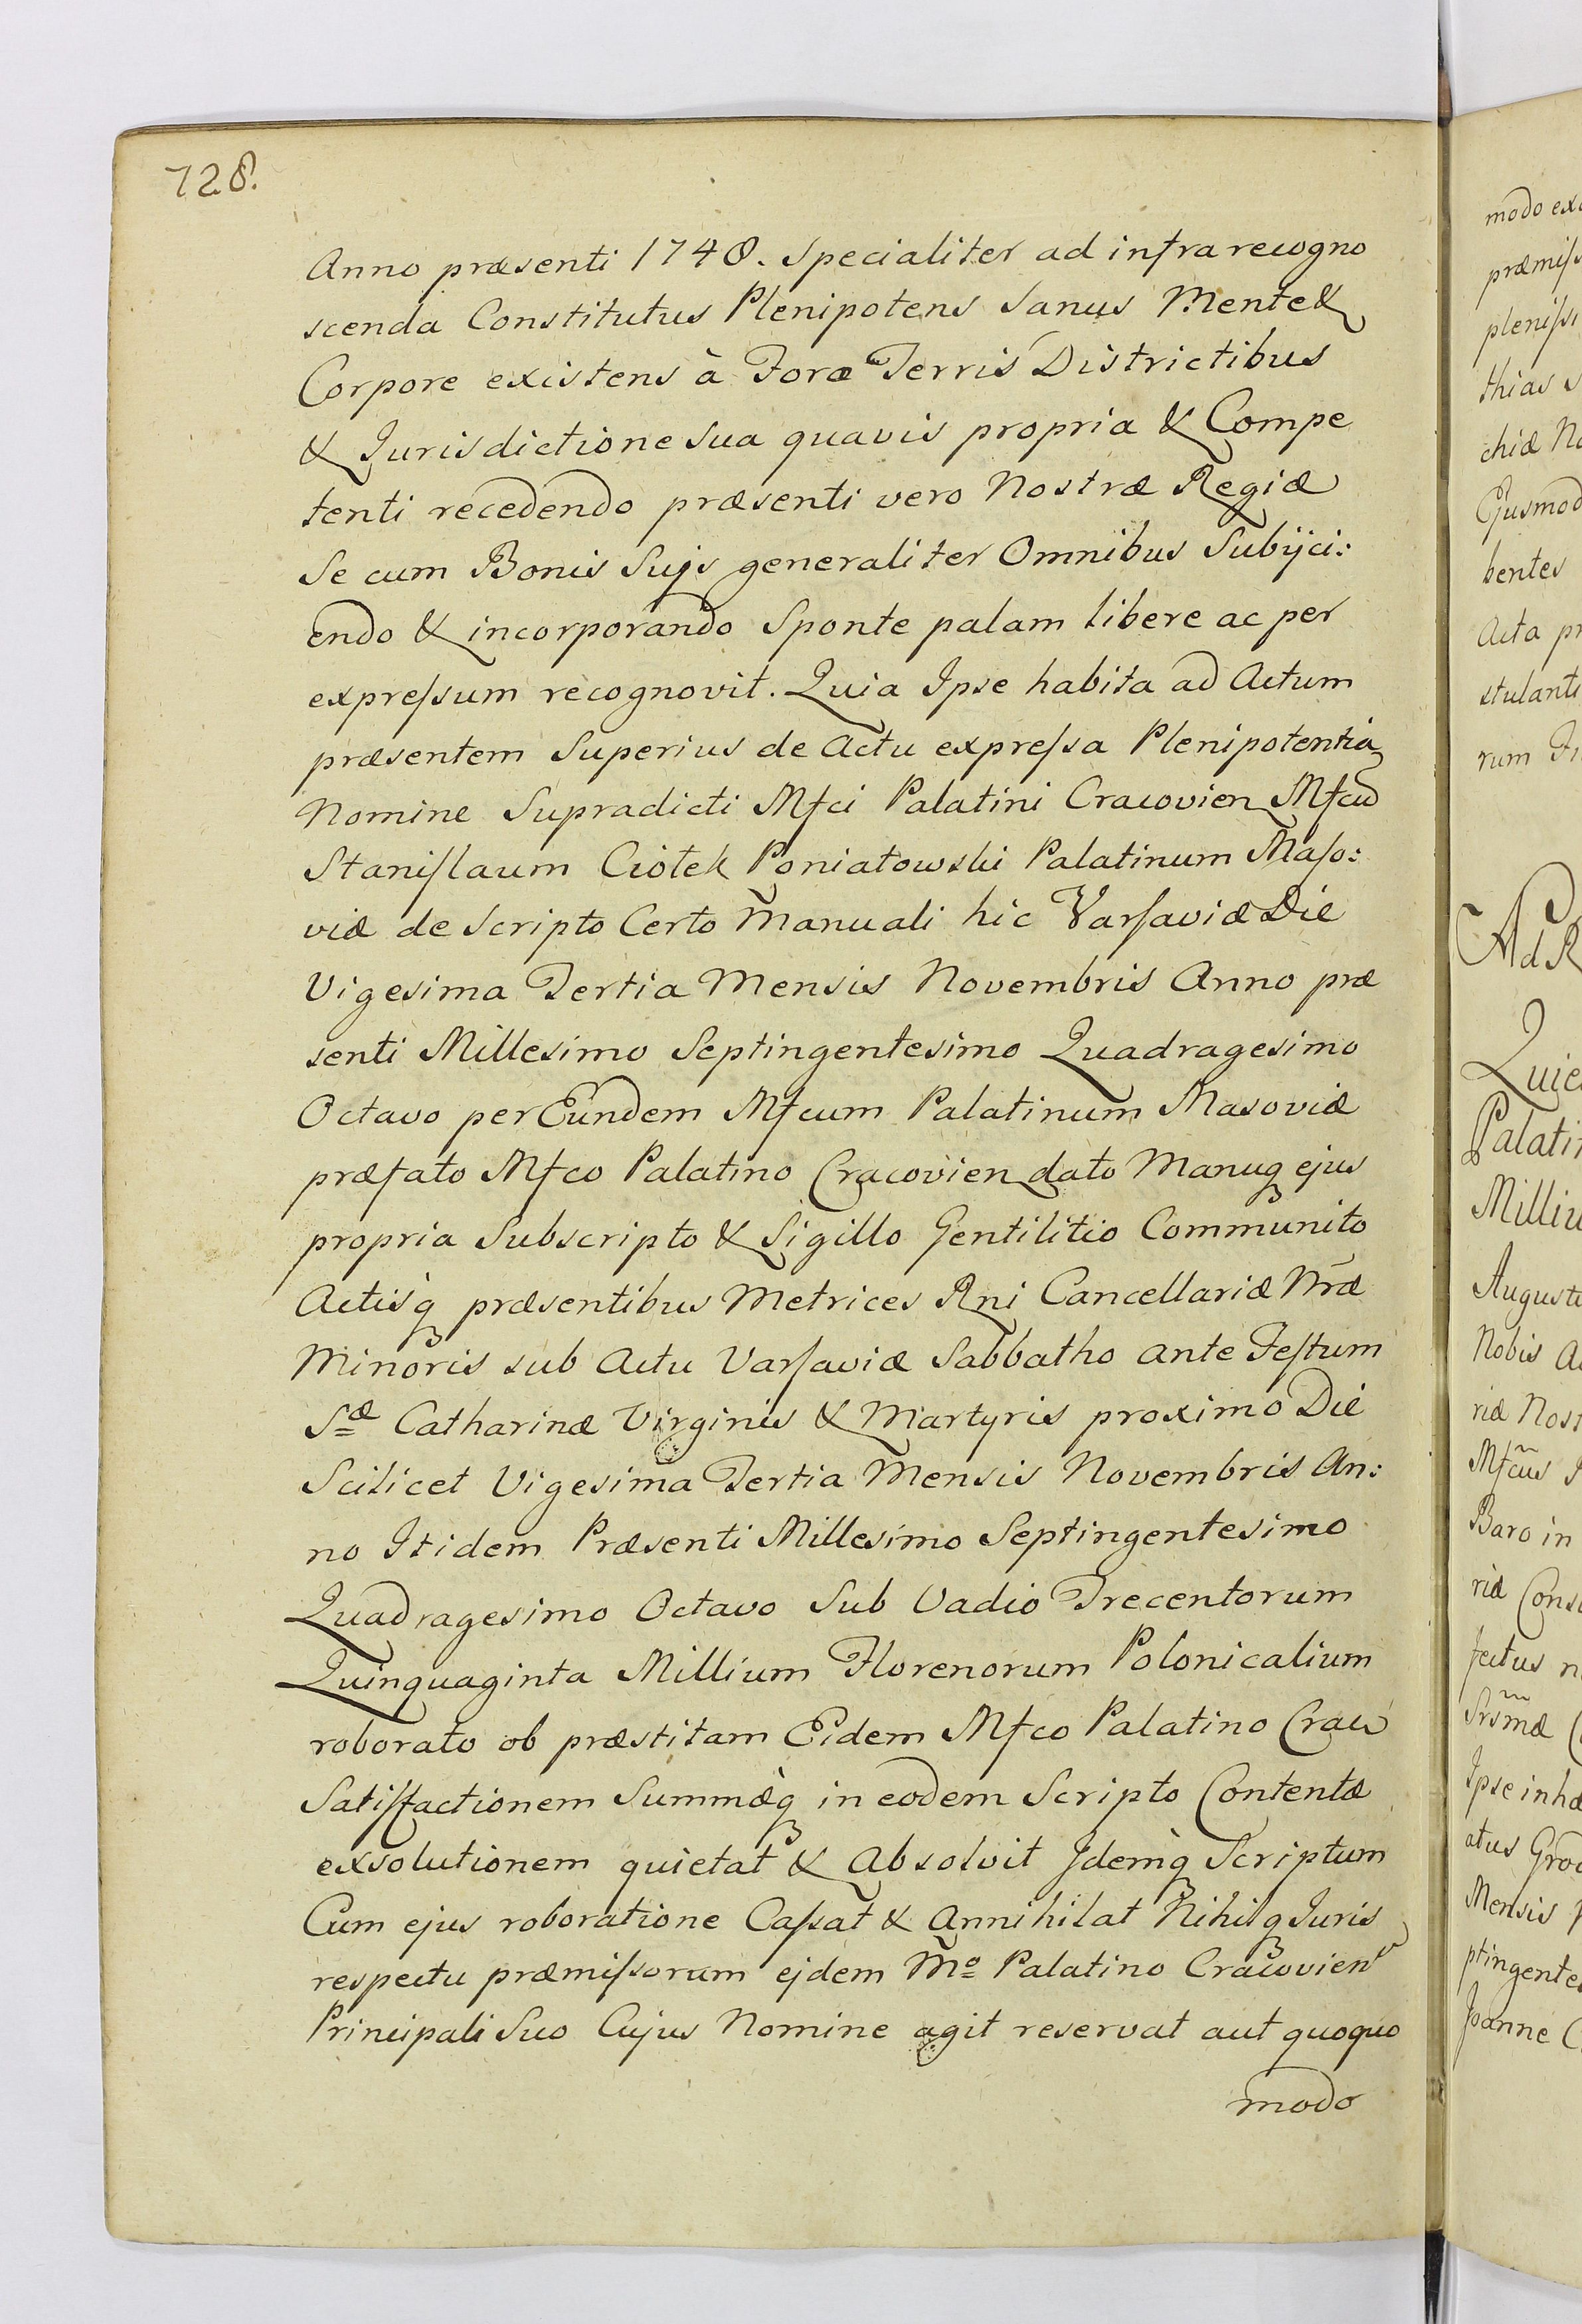 728.
Anno præsenti 1748. Specialiter ad infra recogno
scenda Constitutus Plenipotens Sanus Mente &
Corpore existens à Foræ Terris Districtibus
& Jurisdictione Sua quavis propria & Compe
tenti recedendo præsenti vero Nostræ Regiæ
Se cum Bonis Sujs generaliter Omnibus Subijci:
endo & incorporando Sponte palam libere ac per
expreſsum recognovit. Quia Ipse habita ad Actum
præsentem Superius de Actu expreſsa Plenipotentia
Nomine Supradicti Mfci Palatini Cracovien Mfcũ
Staniſlaum Ciołek Poniatowski Palatinum Maſo:
viæ de Scripto Certo Manuali hic Varſaviæ Die
Vigesima Tertia Mensis Novembris Anno præ
senti Millesimo Septingentesimo Quadragesimo
Octavo per Eundem Mfcum Palatinum Masoviæ
præfato Mfco Palatino Cracovien dato Manuq ejus
propria Subscripto & Sigillo Gentilitio Communito
Actisq præsentibus Metrices Rni Cancellariæ Nræ
Minoris sub Actu Varſaviæ Sabbatho ante Feſtum
Sæ Catharinæ Virginis & Martyris proximo Die
Scilicet Vigesima Tertia Mensis Novembris An:
no Itidem Præsenti Millesimo Septingentesimo
Quadragesimo Octavo Sub Vadio Trecentorum
Quinquaginta Millium Florenorum Polonicalium
roborato ob præstitam Eidem Mfco Palatino Crac
Satiſfactionem Summæq in eodem Scripto Contentæ
exsolutionem quietat & Absolvit Idemq Scriptum
Cum ejus roboratione Caſsat & Annihilat Nihilq Juris
respectu præmiſsorum ejdem Mo Palatino Cracovien
Principali Suo Cujus Nomine agit reservat aut quoquo
modo
modo ex
præmiſs
pleniſsi
thias
chiæ No
Ejusmod
bentes
Acta pr
stulanti
rum
Ad R
Quie
Palati
Milliu
Augusti
Nobis A
riæ Nost
Mfcus
Baro in
riæ Cons
fectus n
Srsmæ
Ipse inhæ
atus Grod
Mensis
ptingente
Joanne